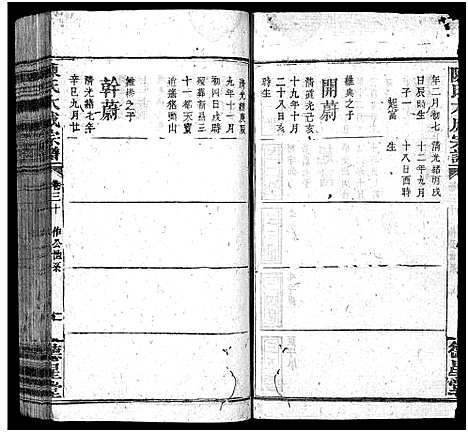 陳氏大成宗譜
年二月初七
日辰時生
子一
起富
清光緒丙戌
十二年九月
十八日酉時
生
開蔚
維典之子
清道光己亥
十九年十月
二十八日
時生
清光緒庚辰
九年十一月
初四日戌時
歿葬新莊
十一都天堂
逍遙豬頭山
幹蔚
維拱之子
清光緒七年
辛巳九月廿
陳氏大成宗譜
卷三十
德星堂
德星堂